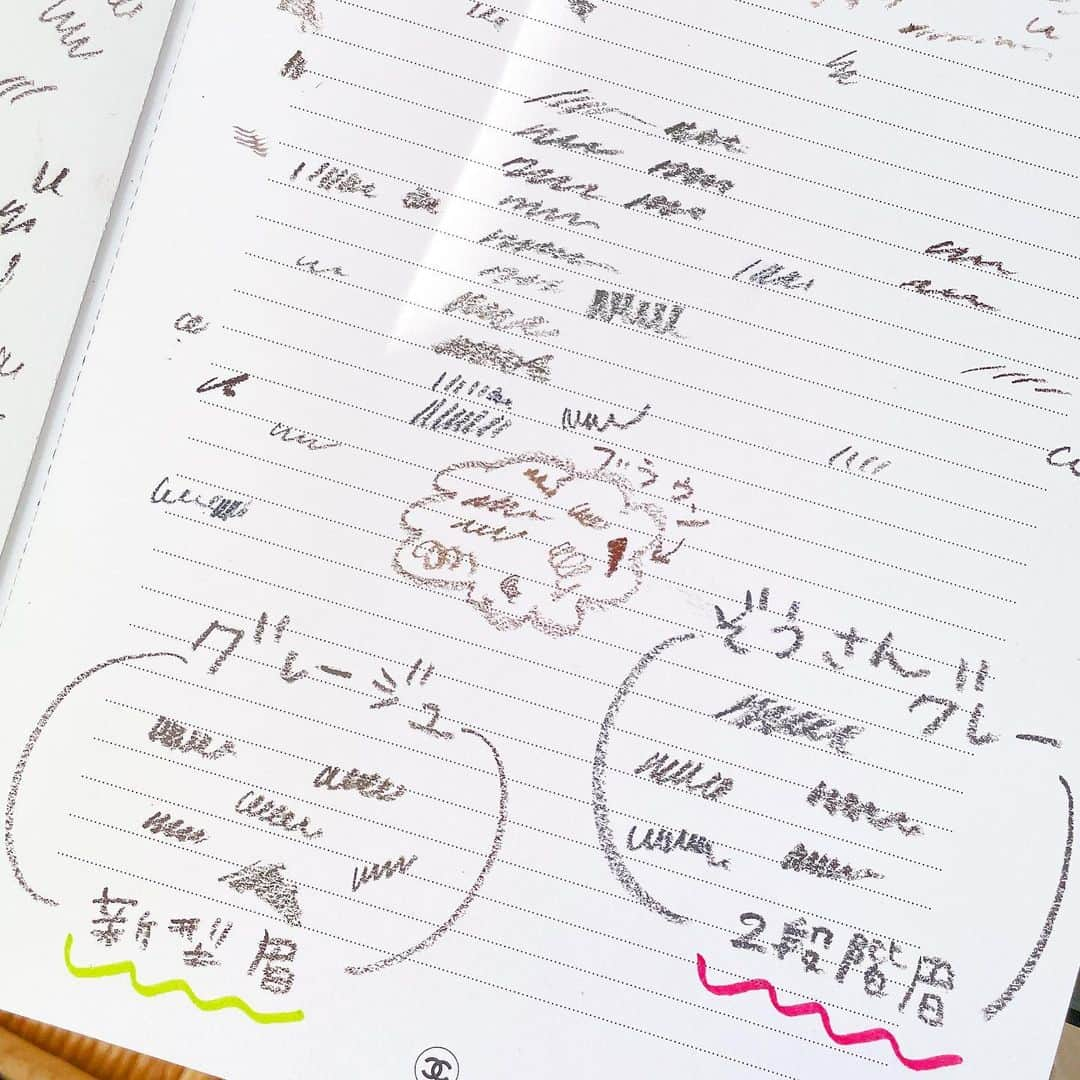 ブラウン
グレージュ
ぞうさん
グレー
2段階眉